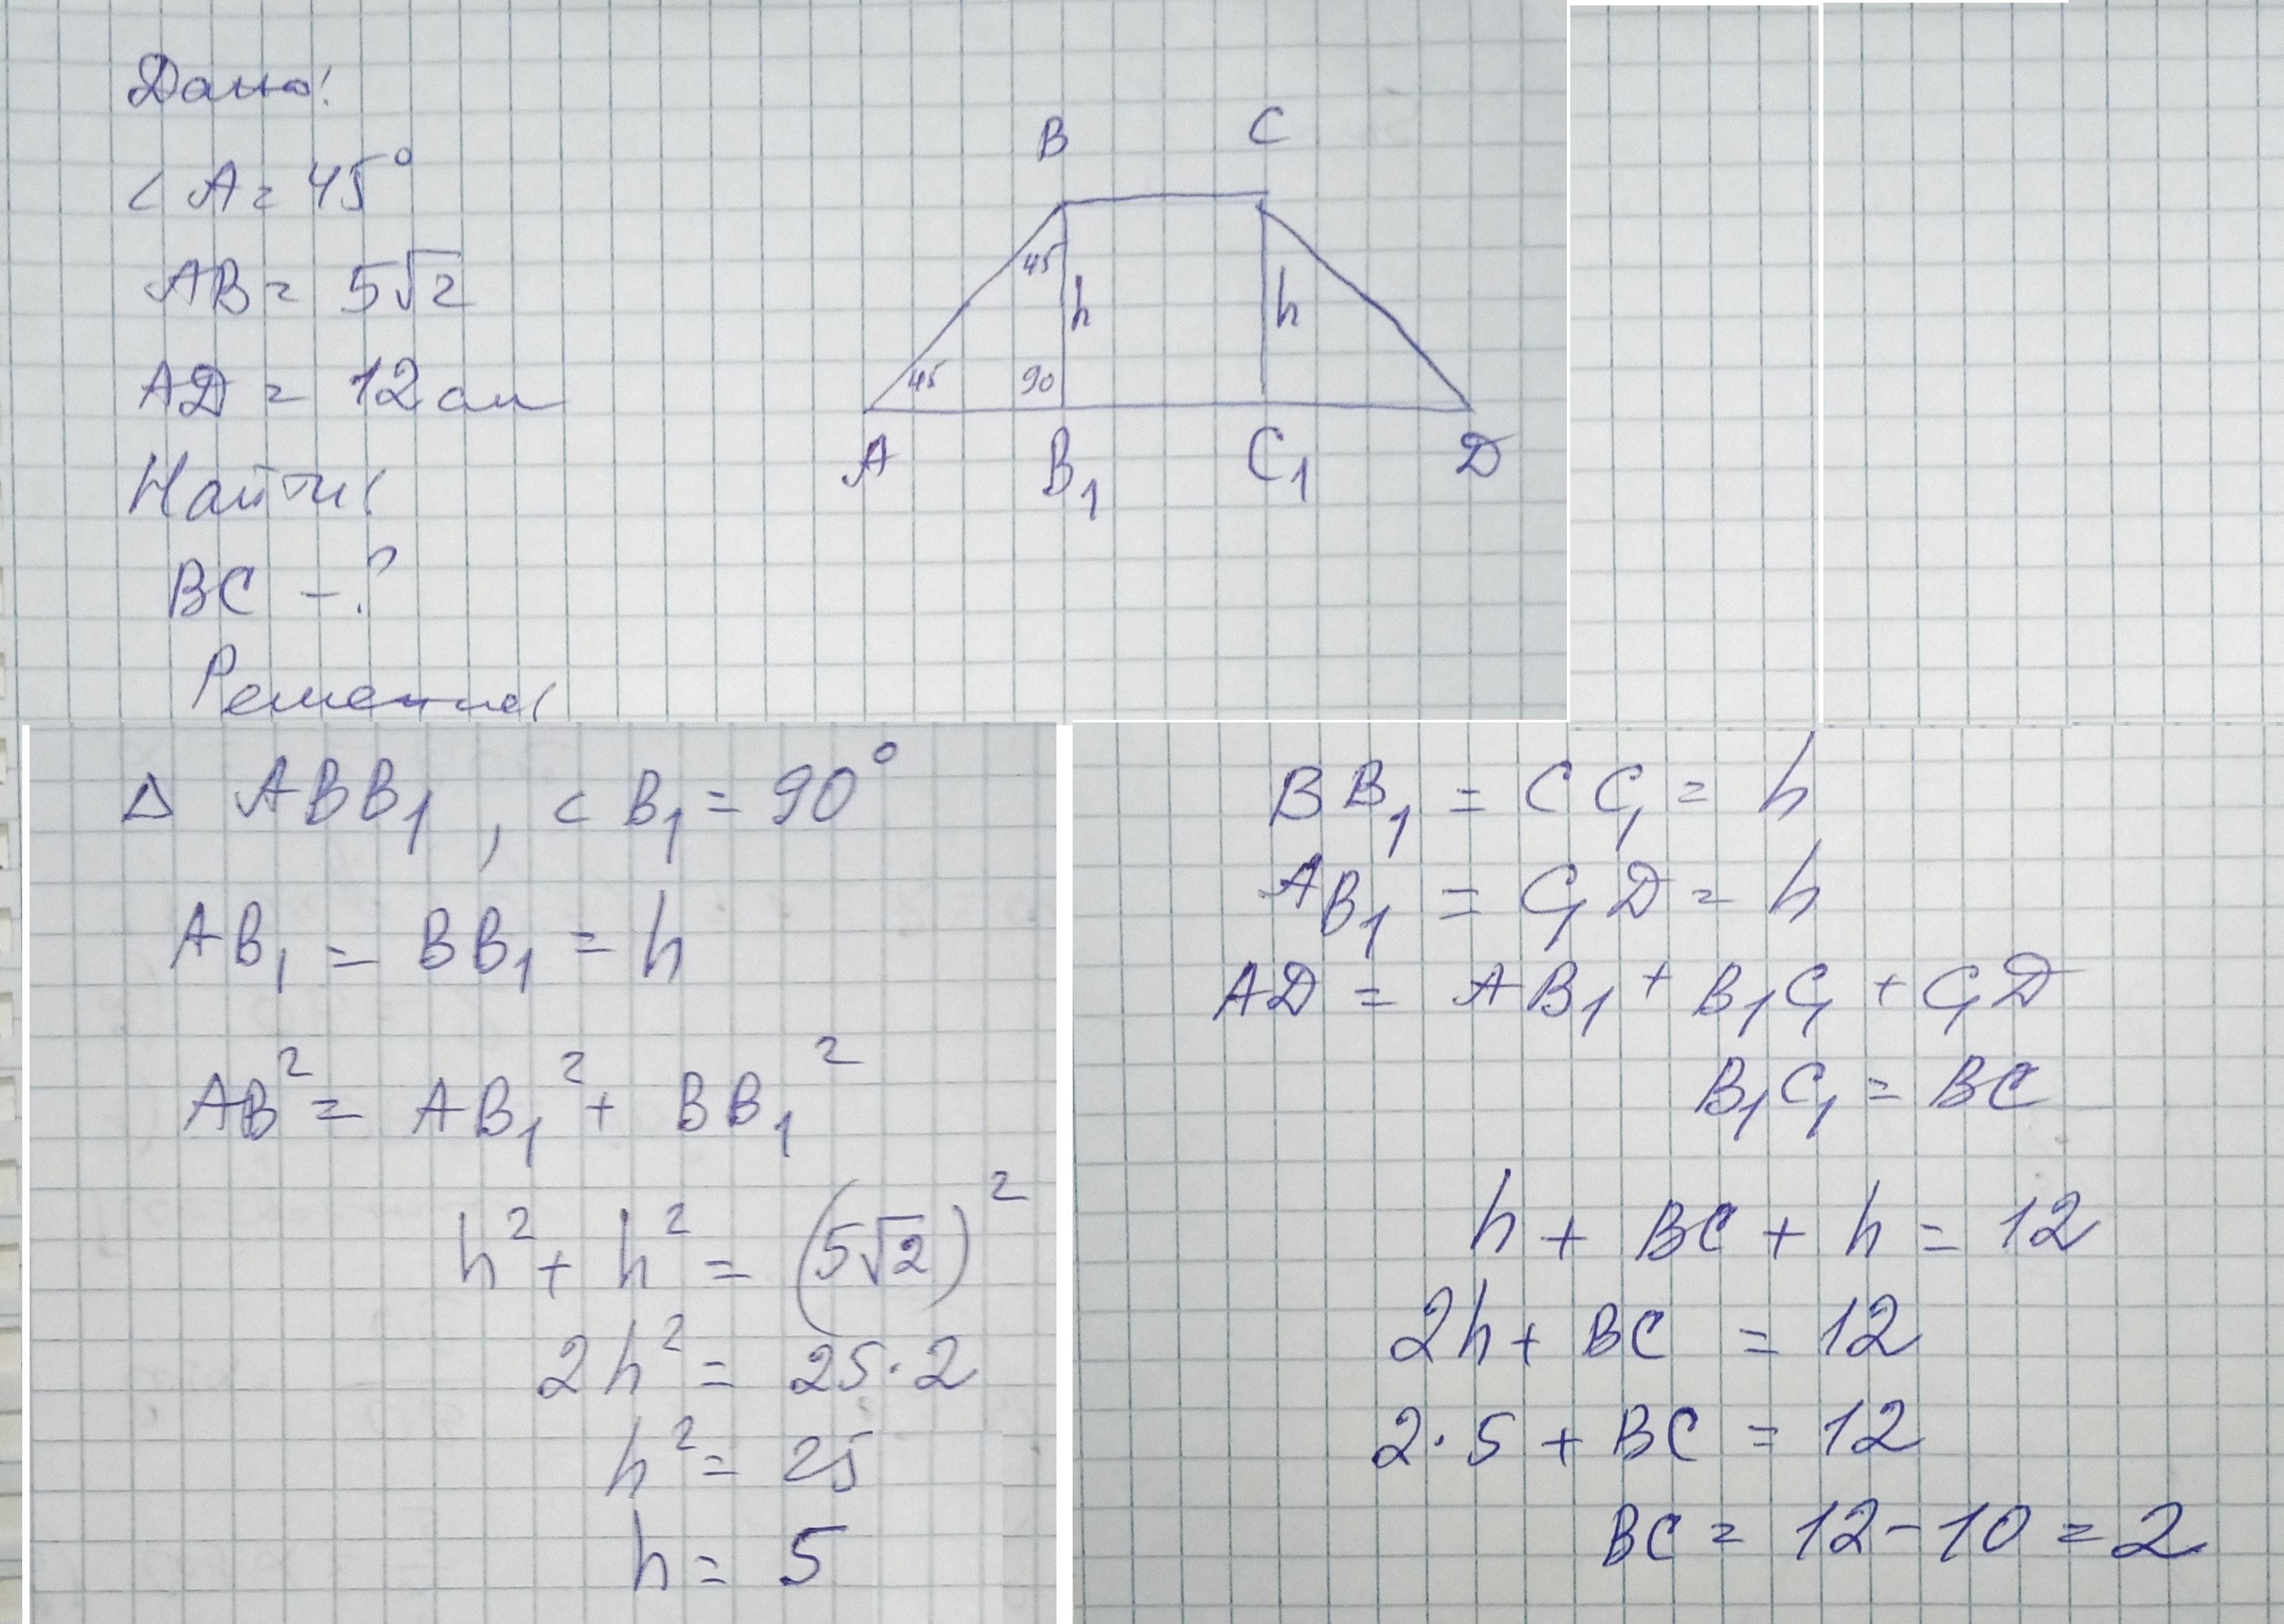 Дано:
∠A = 45°
AB = 5√2
AD = 12 см
Найти:
BC - ?
B C
45 h h
45 90
A B₁ C₁ D
Решение:
Δ ABB₁, ∠B₁ = 90°
AB₁ = BB₁ = h
AB² = AB₁² + BB₁²
h² + h² = (5√2)²
2h² = 25·2
h² = 25
h = 5
BB₁ = CC₁ = h
AB₁ = C₁D = h
AD = AB₁ + B₁C₁ + C₁D
B₁C₁ = BC
h + BC + h = 12
2h + BC = 12
2·5 + BC = 12
BC = 12 - 10 = 2